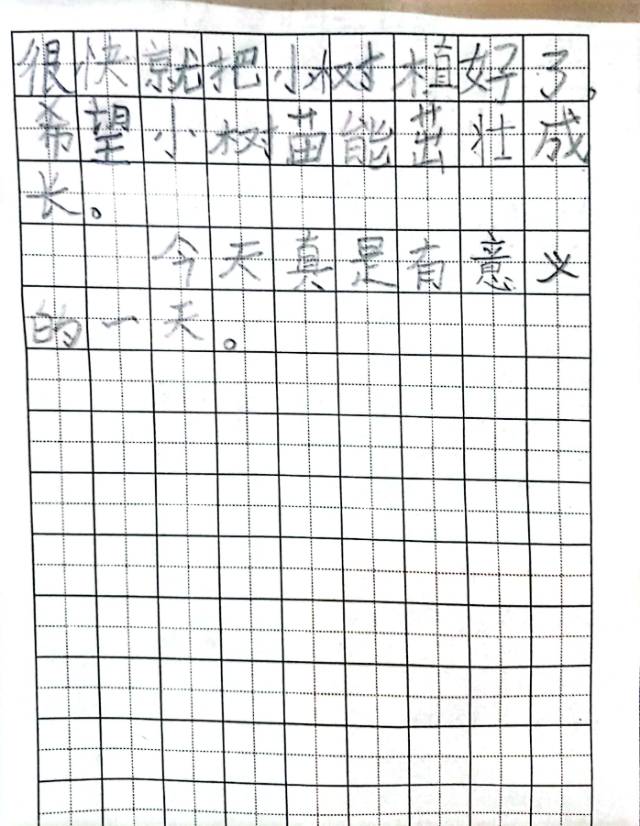 很快就把小树植好了。
希望小树苗能茁壮成
长。
今天真是有意义
的一天。